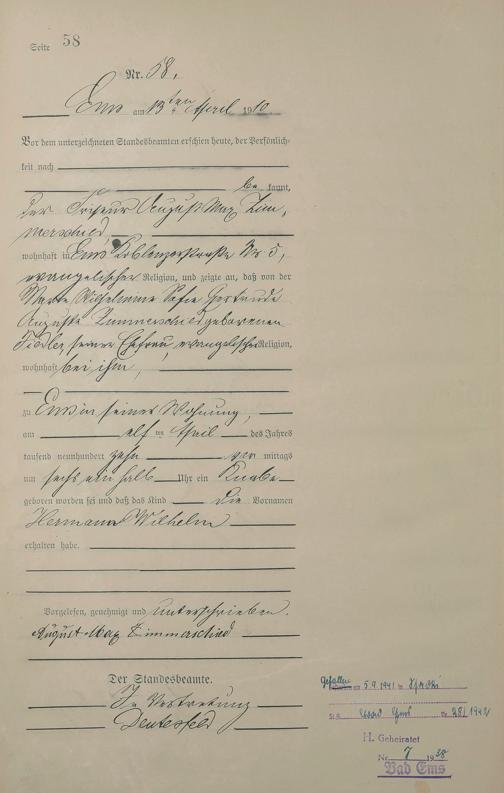 Seite 58
Nr. 58.
Ems am 13ten April 1910
Vor dem unterzeichneten Standesbeamten erschien heute, der Persönlich-
keit nach
be kannt,
der Friseur August Max Zim,
merschied,
wohnhaft in Ems Koblenzerstraße Nr 5,
evangelischer Religion, und zeigte an, daß von der
Wilhelmine Sofie Gertrude
Auguste Zimmerschied geborenen
Fiedler, seiner Ehefrau, evangelischer Religion,
wohnhaft bei ihm,
zu Ems in seiner Wohnung,
am elf ten April des Jahres
tausend neunhundert zehn vor mittags
um sechs ein halb Uhr ein Knabe
geboren worden sei und daß das Kind die Vornamen
Hermann Wilhelm
erhalten habe.
Vorgelesen, genehmigt und unterschrieben.
August Max Zimmerschied
Der Standesbeamte.
In Vertretung
Gefallen am 5.9.1941 in
St.A. Ems Nr 28/1942
H. Geheiratet
Nr. 7 1938
Bad Ems